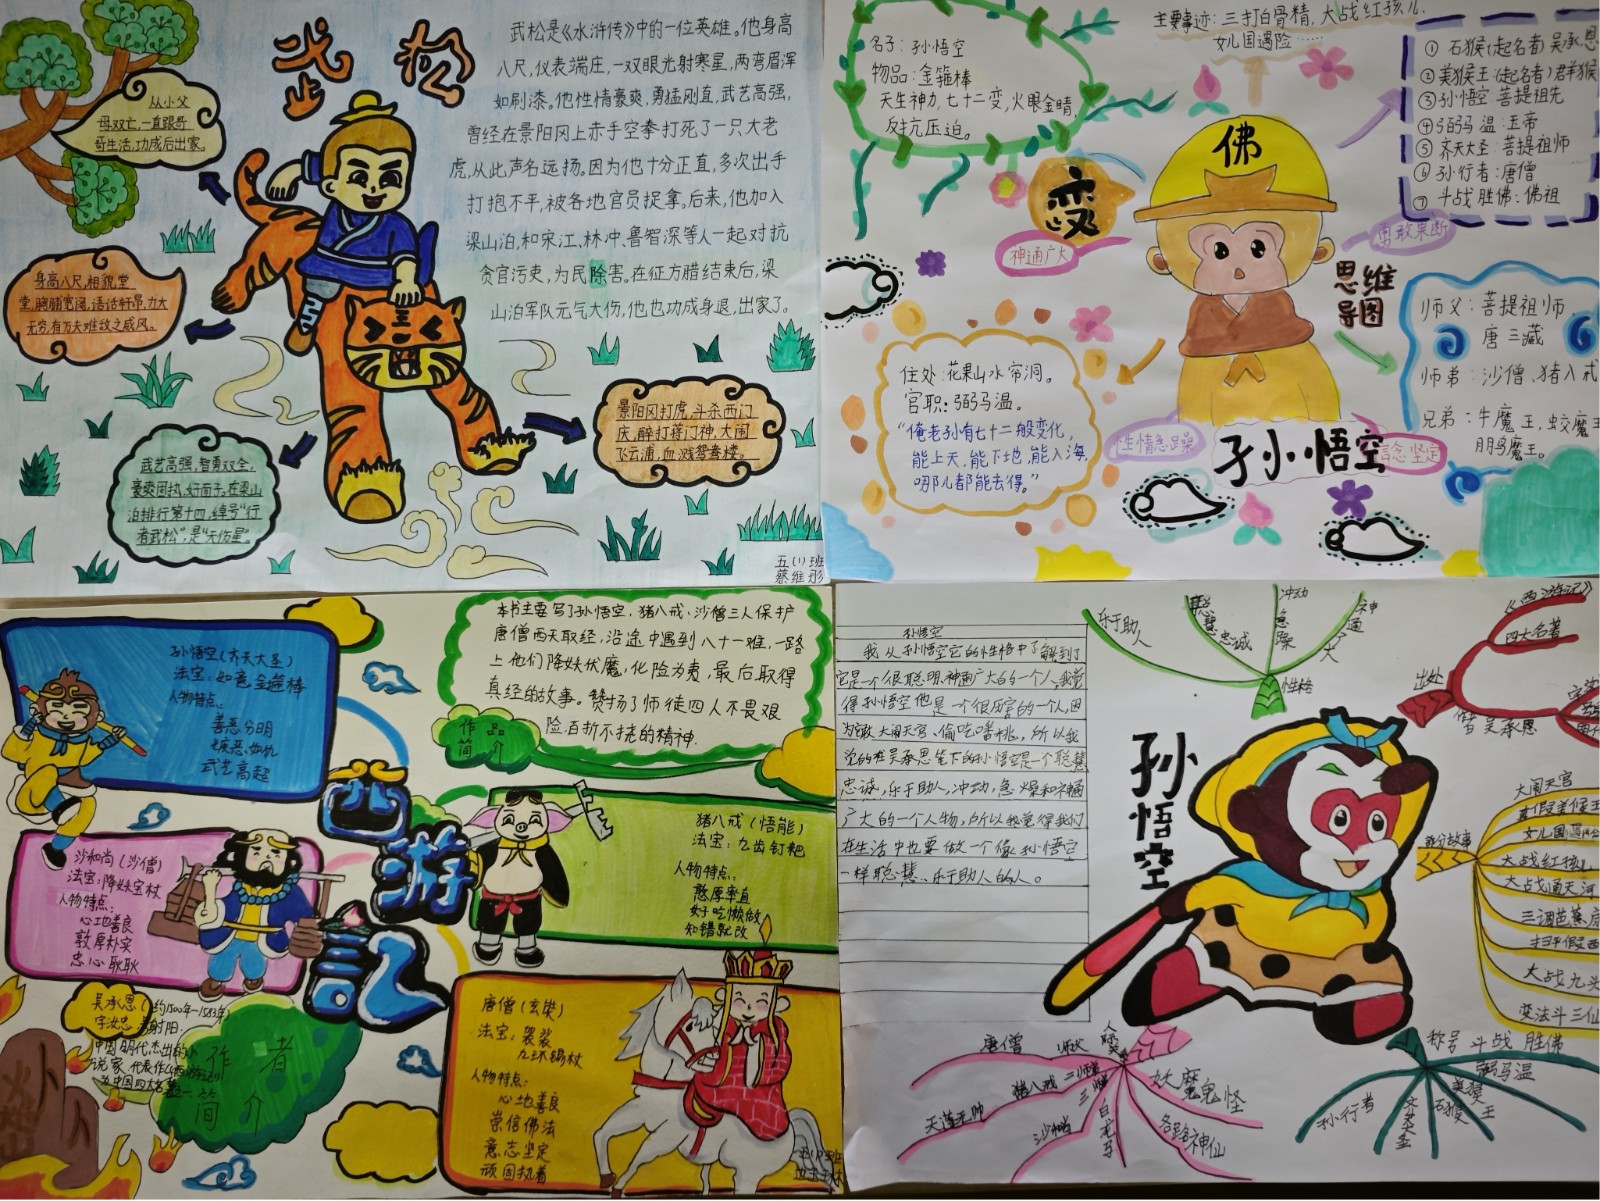 武松
武松是《水浒传》中的一位英雄。他身高
八尺,仪表端庄,一双眼光射寒星,两弯眉浑
如刷漆。他性情豪爽,勇猛刚直,武艺高强,
曾经在景阳冈上赤手空拳打死了一只大老
虎,从此声名远扬。因为他十分正直,多次出手
打抱不平,被各地官员捉拿。后来,他加入
梁山泊,和宋江、林冲、鲁智深等人一起对抗
贪官污吏,为民除害。在征方腊结束后,梁
山泊军队元气大伤,他也功成身退,出家了。
从小父
母双亡,一直跟哥
哥生活,功成后出家。
身高八尺,相貌堂
堂,胸脯宽阔,语话轩昂,力大
无穷,有万夫难敌之威风。
武艺高强,智勇双全,
豪爽固执,好面子。在梁山
泊排行第十四,绰号“行
者武松”,是“天伤星”。
景阳冈打虎,斗杀西门
庆,醉打蒋门神,大闹
飞云浦,血溅鸳鸯楼。
五(1)班
蔡维彤
主要事迹:三打白骨精,大战红孩儿
女儿国遇险……
名子:孙悟空
物品:金箍棒
天生神力,七十二变,火眼金睛,
反抗压迫。
① 石猴(起名者)吴承恩
② 美猴王(起名者)群猴
③ 孙悟空:菩提祖先
④ 弼马温:王帝
⑤ 齐天大圣:菩提祖师
⑥ 孙行者:唐僧
⑦ 斗战胜佛:佛祖
佛
变
神通广大
勇敢果断
思维
导图
师父:菩提祖师,
唐三藏
师弟:沙僧、猪八戒
兄弟:牛魔王,蛟魔王
鹏魔王。
住处:花果山水帘洞。
官职:弼马温。
“俺老孙有七十二般变化,
能上天,能下地,能入海,
哪儿都能去得。”
性情急躁
孙悟空
念坚定
孙悟空(齐天大圣)
法宝:如意金箍棒
人物特点:
善恶分明
嫉恶如仇
武艺高超
本书主要写了孙悟空、猪八戒、沙僧三人保护
唐僧西天取经,沿途中遇到八十一难,一路
上他们降妖伏魔,化险为夷,最后取得
真经的故事。赞扬了师徒四人不畏艰
险百折不挠的精神.
作品
简介
西游記
沙和尚(沙僧)
法宝:降妖宝杖
人物特点:
心地善良
敦厚朴实
忠心耿耿
猪八戒(悟能)
法宝:九齿钉耙
人物特点:
憨厚率直
好吃懒做
知错就改
唐僧(玄奘)
法宝:袈裟
九环锡杖
人物特点:
心地善良
崇信佛法
意志坚定
顽固执着
吴承恩(约1500年-1583年)
字汝忠 号射阳.
中国明代杰出的小
说家,代表作《西游记》
作者
简介
孙悟空
我从孙悟空它的性格中了解到了
它是一个很聪明神通广大的一个人,我觉
得孙悟空他是一个很厉害的一个人,因
为敢大闹天宫、偷吃蟠桃,所以我
觉的在吴承恩笔下的孙悟空是一个聪慧
忠诚,乐于助人,冲动,急燥和神通
广大的一个人物,所以我觉得我们
在生活中也要做一个像孙悟空
一样聪慧、乐于助人的人。
乐于助人
聪慧忠诚
冲动急躁
神通广大
性格
《西游记》
四大名著
出处
吴承恩
孙悟空
部分故事
大闹天宫
真假美猴王
女儿国
大战红孩儿
大战通天河
三调芭蕉扇
大战九头
变法斗三仙
唐僧
师父
猪八戒
天蓬元帅
沙和尚
白龙马
妖魔鬼怪
各路神仙
称号
斗战胜佛
弼马温
美猴王
石猴
齐天大圣
孙行者